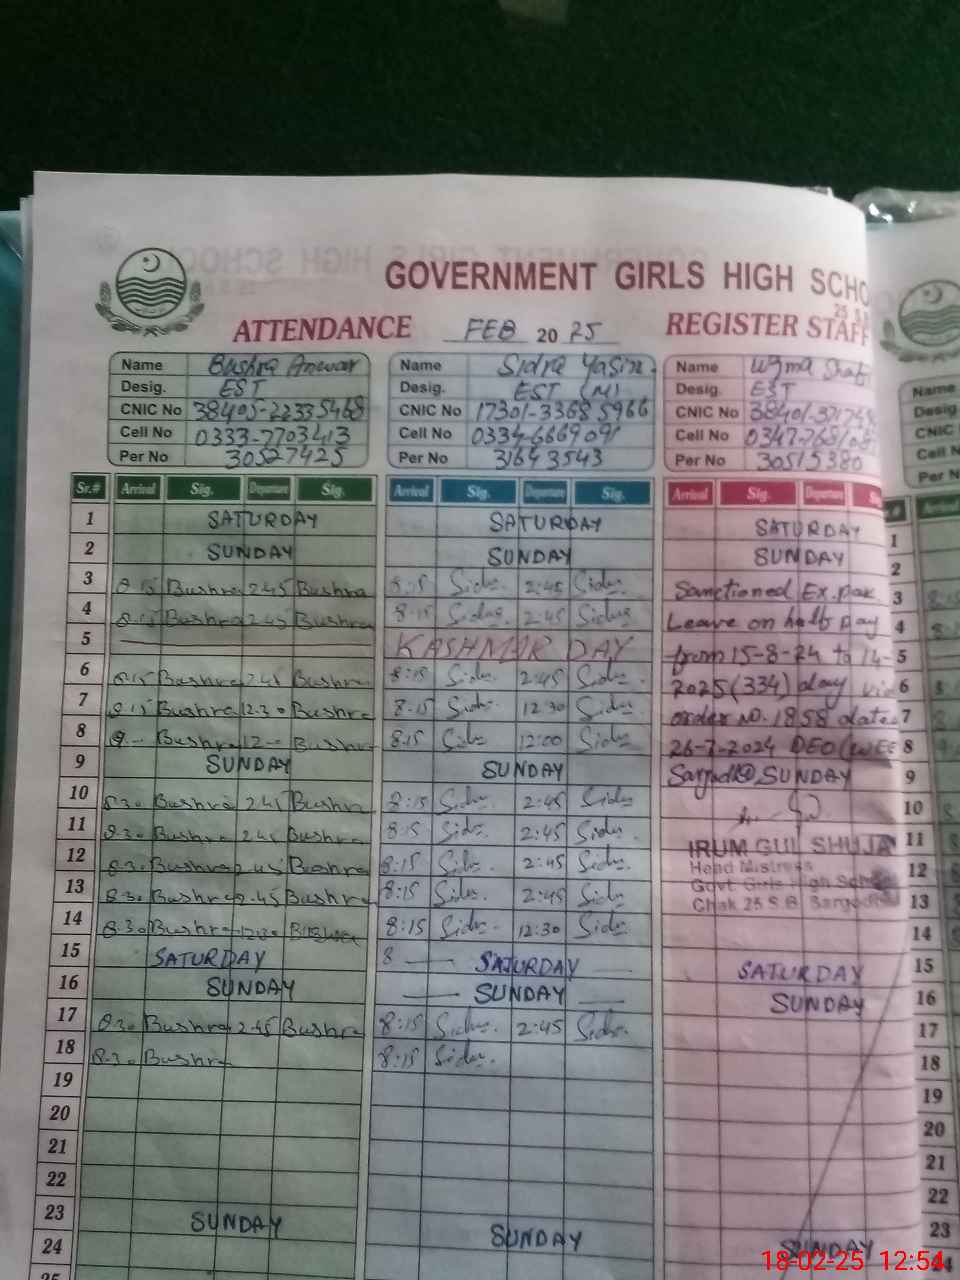 GOVERNMENT GIRLS HIGH SCHO
25 S.B
ATTENDANCE FEB 2025 REGISTER STAFF
Name Bushra Anwar Name Sidra Yasin Name Uzma Shaf
Desig. EST Desig. EST (M) Desig. EST
CNIC No 38405-22335468 CNIC No 17301-3368 5966 CNIC No
Cell No 0333-7703413 Cell No 0334-6669091 Cell No
Per No 30527425 Per No 31643543 Per No 30515380
Sr.# Arrival Sig. Departure Sig. Arrival Sig. Departure Sig. Arrival Sig. Departure
1 SATURDAY SATURDAY SATURDAY 1
2 SUNDAY SUNDAY SUNDAY 2
3 8.15 Bushra 2.45 Bushra 8:15 Sidra 2:45 Sidra Sanctioned Ex.pak 3
4 8.15 Bushra 2.45 Bushra 8.15 Sidra 2:45 Sidra Leave on half pay 4
5 KASHMIR DAY from 15-8-24 to 14- 5
6 8.15 Bushra 2.45 Bushra 8:15 Sidra 2:45 Sidra 2025(334) day vid 6
7 8.15 Bushra 12.30 Bushra 8.15 Sidra 12:30 Sidra order NO. 1858 date 7
8 Bushra Bushra 8.15 Sidra 12:00 Sidra 26-7-2024 DEO(WEE 8
9 SUNDAY SUNDAY SUNDAY 9
10 8.30 Bushra 2.45 Bushra 8:15 Sidra 2:45 Sidra 10
11 8.30 Bushra 2.45 Bushra 8:15 Sidra 2:45 Sidra IRUM GUL SHUJA 11
12 8.30 Bushra 2.45 Bushra 8:15 Sidra 2:45 Sidra Head Mistress 12
Govt. Girls High School
13 8.30 Bushra 2.45 Bushra 8:15 Sidra 2:45 Sidra Chak 25 S B Sargodha 13
14 8.30 Bushra 12.30 Bushra 8:15 Sidra 12:30 Sidra 14
15 SATURDAY 8 SATURDAY SATURDAY 15
16 SUNDAY SUNDAY SUNDAY 16
17 8.30 Bushra 2.45 Bushra 8:15 Sidra 2:45 Sidra 17
18 8.30 Bushra 8:15 Sidra 18
19 19
20 20
21 21
22 22
23 SUNDAY SUNDAY SUNDAY 23
24 24
18-02-25 12:54